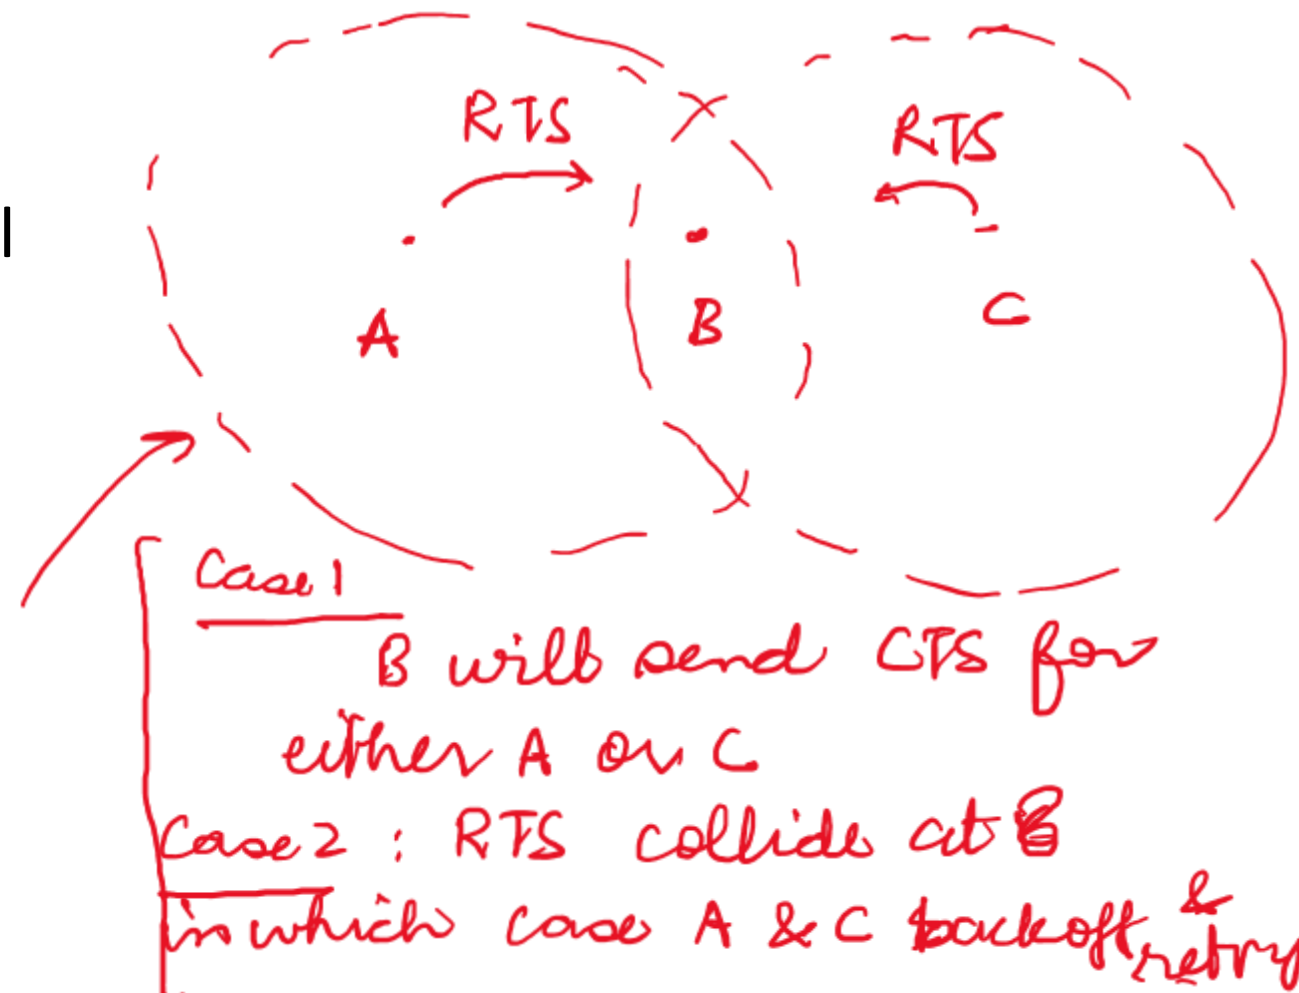 RTS
RTS
A
B
C
Case 1
B will send CTS for
either A or C
Case 2 : RTS collide at B
in which case A & C backoff &
retry